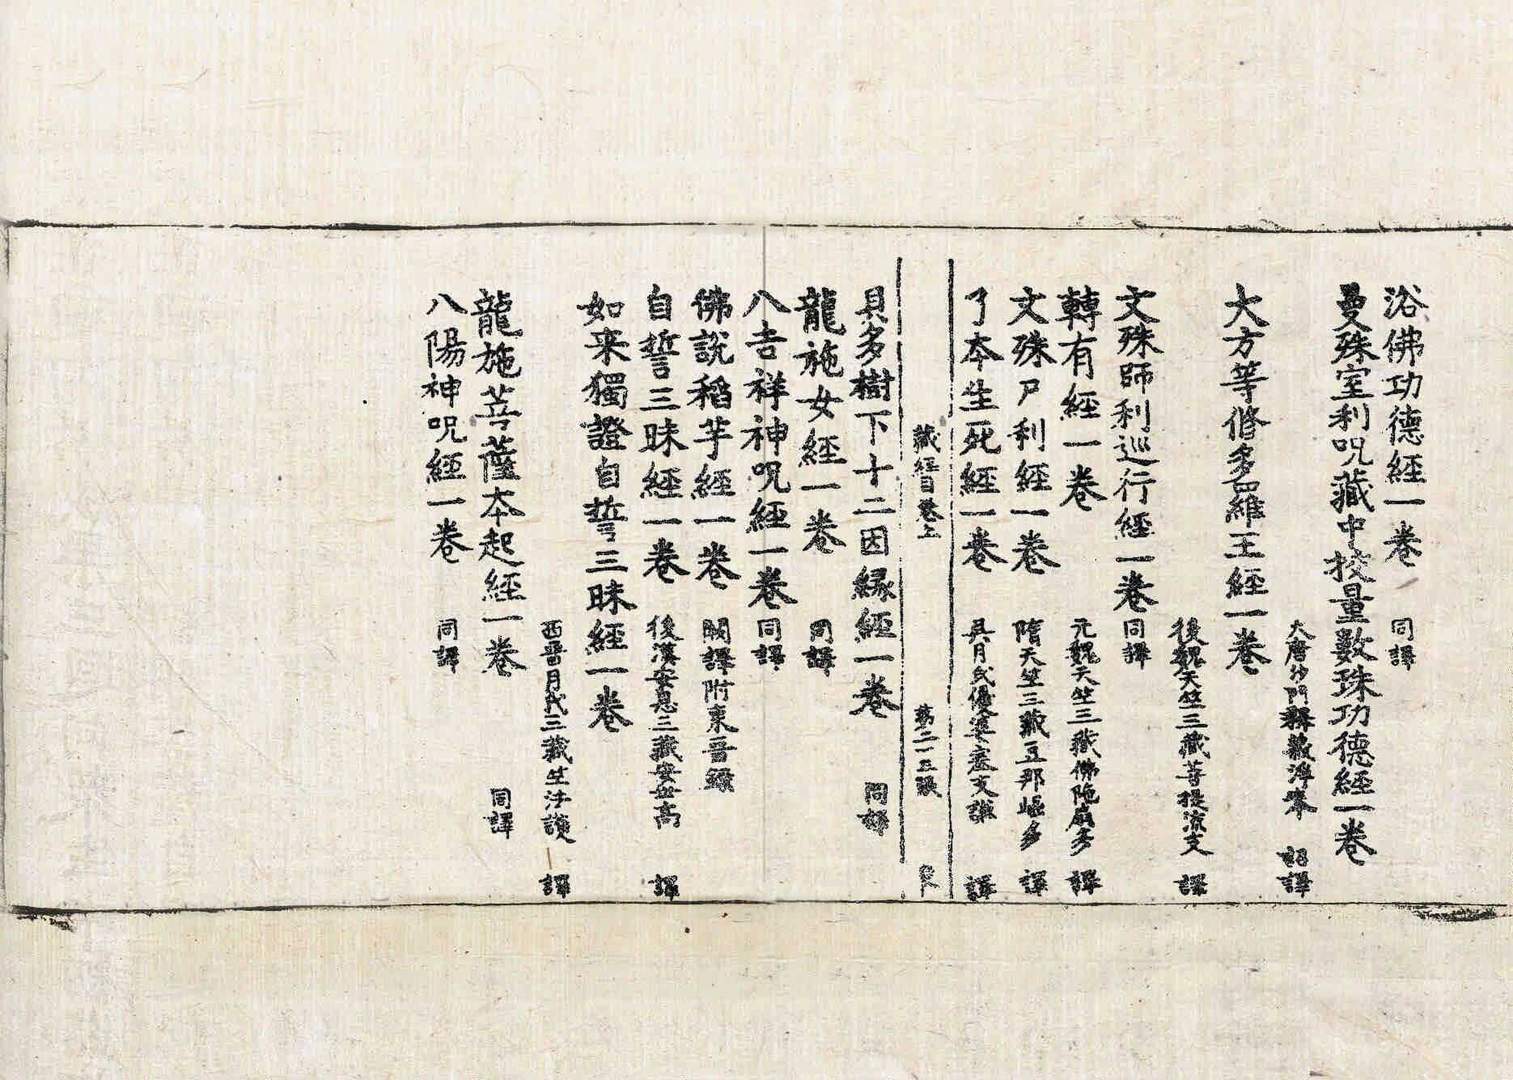 浴佛功德經一卷 同譯
曼殊室利呪藏中挍量數珠功德經一卷
大唐沙門釋義淨奉 詔譯
大方等脩多羅王經一卷
後魏天竺三藏菩提流支 譯
文殊師利巡行經一卷 同譯
轉有經一卷 元魏天竺三藏佛陁扇多 譯
文殊尸利經一卷 隋天竺三藏豆那崛多 譯
了本生死經一卷 吳月氏優婆塞支謙 譯
藏經目卷上 第二十三張
貝多樹下十二因緣經一卷 同譯
龍施女經一卷 同譯
八吉祥神呪經一卷 同譯
佛說稻芉經一卷 闕譯附東晉錄
自誓三昧經一卷 後漢安息三藏安世高 譯
如来獨證自誓三昧經一卷
西晉月氏三藏竺法護 譯
龍施菩薩本起經一卷 同譯
八陽神呪經一卷 同譯